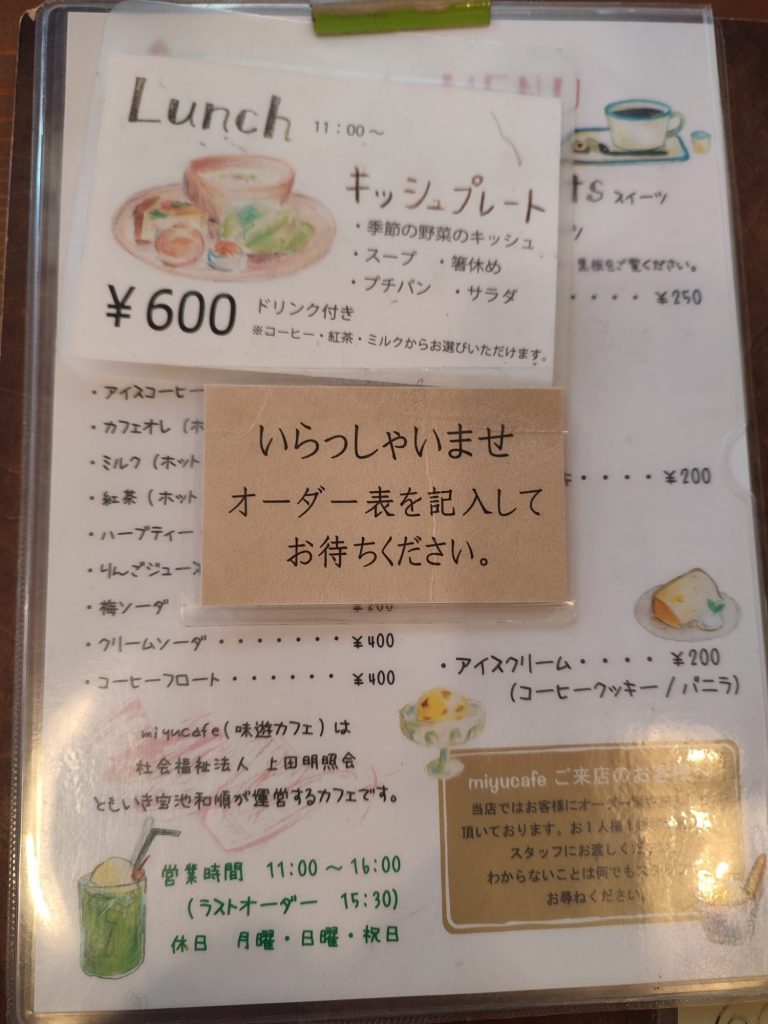 MENU
Lunch 11:00～
キッシュプレート
・季節の野菜のキッシュ
・スープ ・箸休め
・プチパン ・サラダ
¥600 ドリンク付き
※コーヒー・紅茶・ミルクからお選びいただけます。
ts スイーツ
黒板をご覧ください。
・・・・ ¥250
・アイスコーヒー
・カフェオレ（ホ
・ミルク（ホット
・紅茶（ホット
・ハーブティー
・りんごジュース
・梅ソーダ ¥200
・クリームソーダ・・・・・・・¥400
・コーヒーフロート・・・・・・¥400
いらっしゃいませ
オーダー表を記入して
お待ちください。
キ・・・・¥200
・アイスクリーム・・・・ ¥200
（コーヒークッキー / バニラ）
miyucafe（味遊カフェ）は
社会福祉法人 上田明照会
ともいき宝池和順が運営するカフェです。
営業時間 11:00～16:00
（ラストオーダー 15:30）
休日 月曜・日曜・祝日
miyucafe ご来店のお客様
当店ではお客様にオーダー
頂いております。お1人様1
スタッフにお渡しくだ
わからないことは何でもス
お尋ねください。